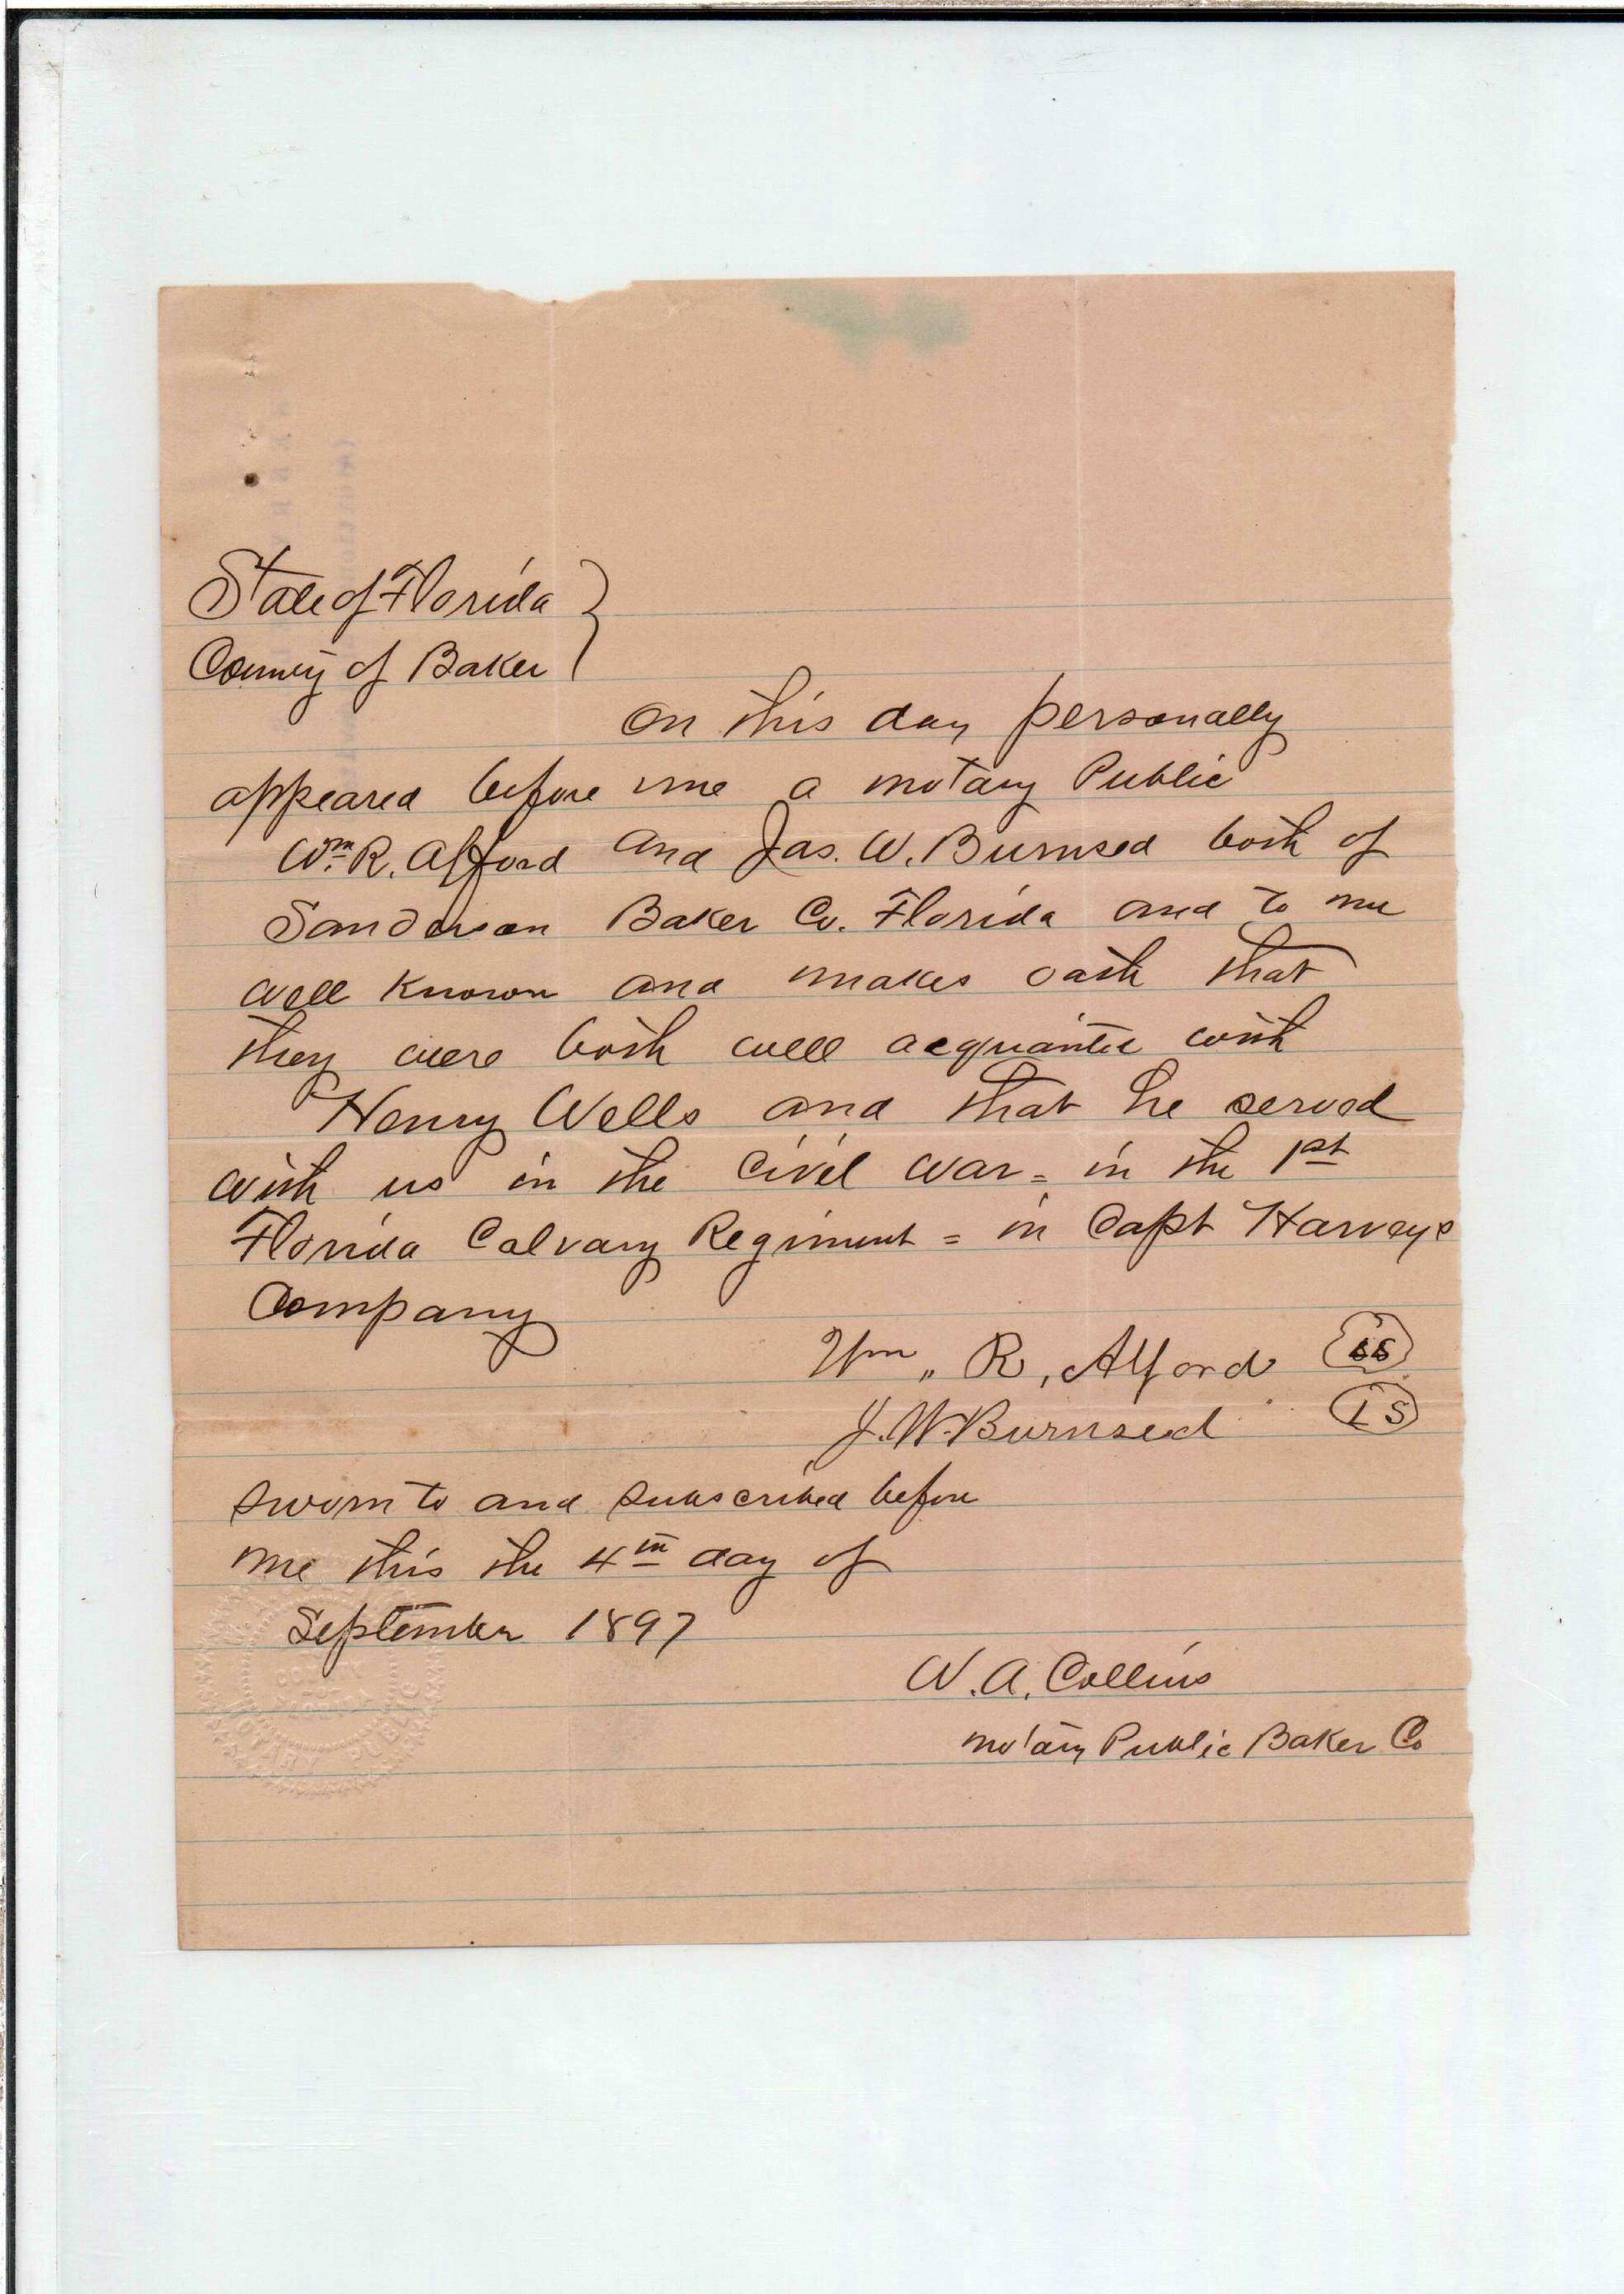 State of Florida }
County of Baker }
On this day personally
appeared before me a notary Public
Wm. R. Alford and Jas. W. Burnsed both of
Sanderson Baker Co. Florida and to me
well known and makes oath that
they were both well acquanted with
Henry Wells and that he served
with us in the Civil war = in the 1st
Florida Calvary Regiment = in Capt Harveys
Company
Wm,, R, Alford LS
J. W. Burnsed LS
Sworn to and subscribed before
me this the 4th day of
September 1897
W. A. Collins
notary Public Baker Co
NOTARY PUBLIC